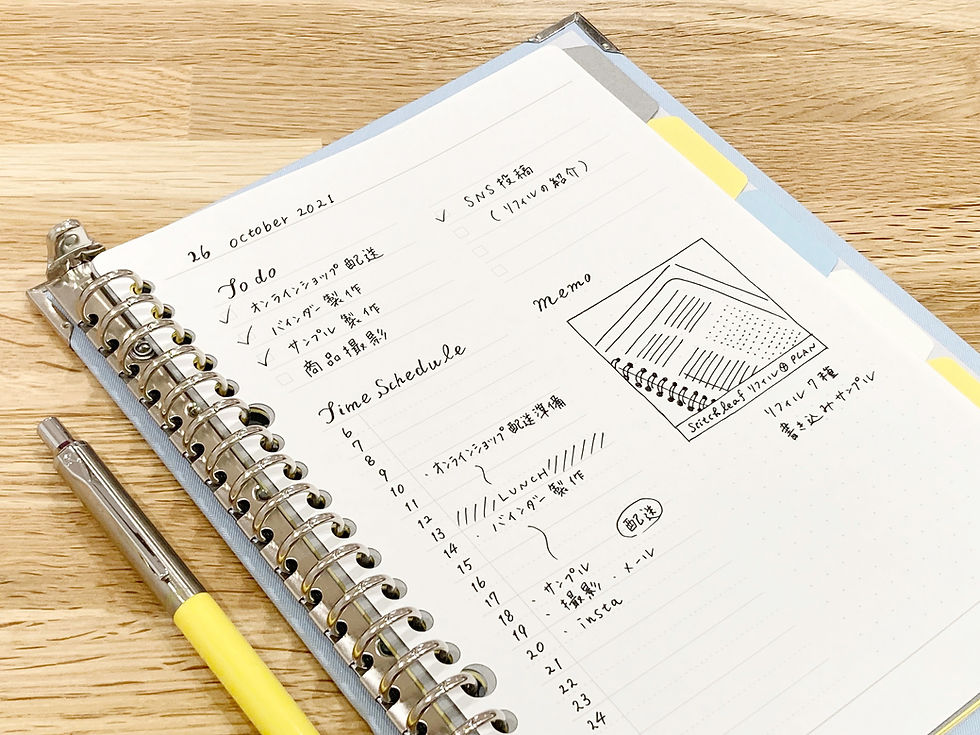 26 october 2021
To do
✓ オンラインショップ配送
✓ バインダー製作
✓ サンプル製作
□ 商品撮影
✓ SNS投稿
(リフィルの紹介)
Time Schedule
6
7
8
9 ・オンラインショップ配送準備
10
11
12 LUNCH
13 ・バインダー製作
14
15 配送
16
17 ・サンプル
18 ・撮影・メール
19 ・insta
20
21
22
23
24
memo
Scitchleaf リフィル⊕PLAN
リフィル7種
書き込みサンプル